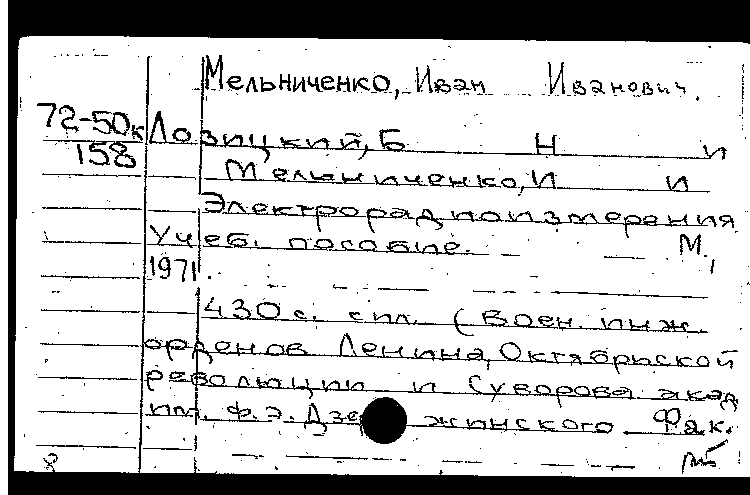 Мельниченко, Иван Иванович.
72-50к Лозицкий, Б Н и
158
Мельниченко, И И
Электрорадиоизмерения
Учеб. пособие. М.,
1971.
430 с. с ил. (Воен. инж.
орденов Ленина, Октябрьской
революции и Суворова акад.
им. Ф.Э. Дзержинского Фак.